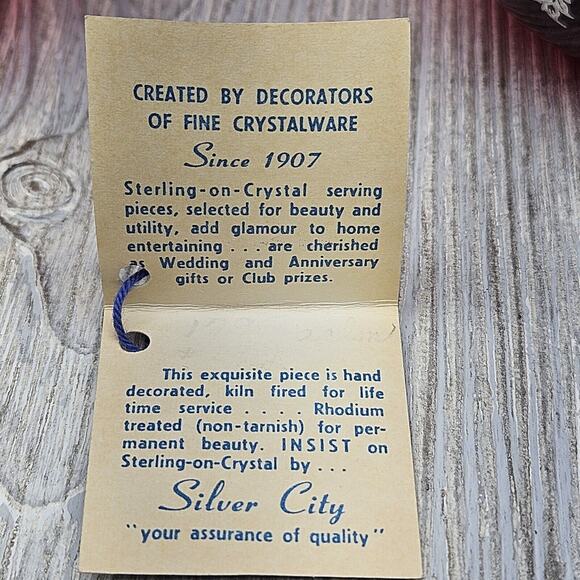 CREATED BY DECORATORS
OF FINE CRYSTALWARE
Since 1907
Sterling-on-Crystal serving
pieces, selected for beauty and
utility, add glamour to home
entertaining . . . are cherished
as Wedding and Anniversary
gifts or Club prizes.
This exquisite piece is hand
decorated, kiln fired for life
time service . . . . Rhodium
treated (non-tarnish) for per-
manent beauty. INSIST on
Sterling-on-Crystal by . . .
Silver City
"your assurance of quality"